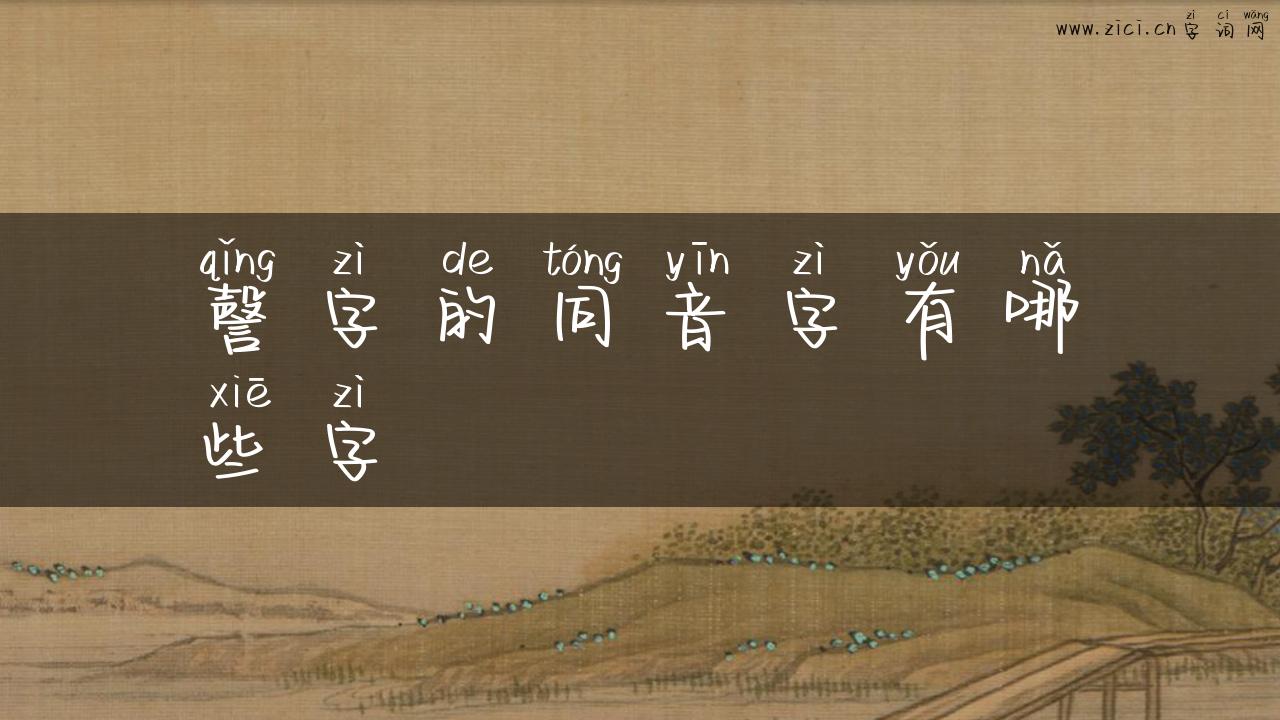 zì cí wǎng
www.zici.cn 字词网
qǐng zì de tóng yīn zì yǒu nǎ
謦字的同音字有哪
xiē zì
些字